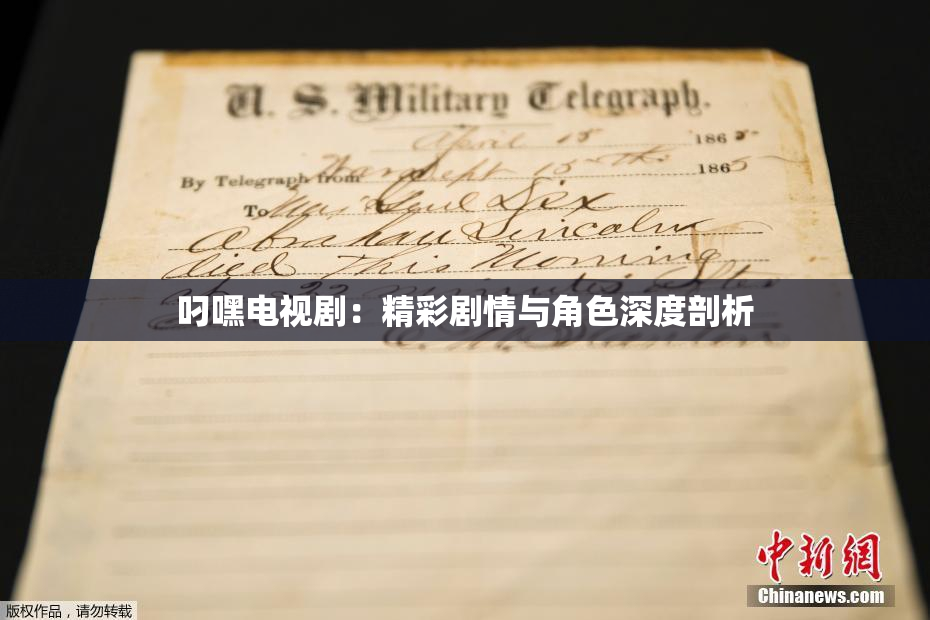 U. S. Military Telegraph.
April 15 1865
By Telegraph from War Dept 15th 1865
To Maj Genl Dix
Abraham Lincoln
died This Morning
22 minutes after
叼嘿电视剧：精彩剧情与角色深度剖析
中新網
Chinanews.com
版权作品，请勿转载